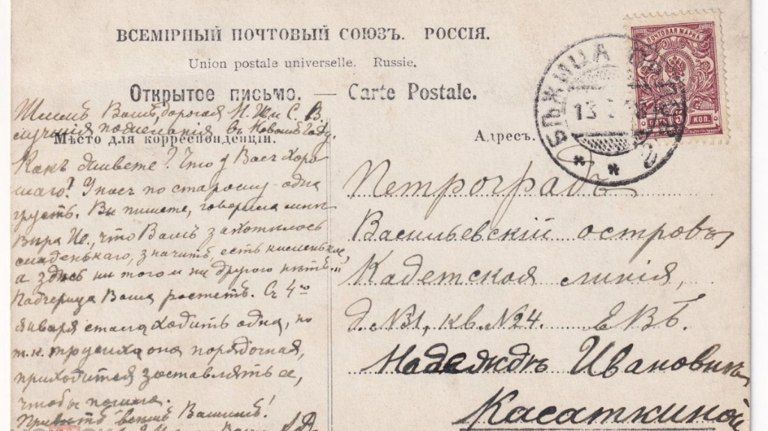 ВСЕМІРНЫЙ ПОЧТОВЫЙ СОЮЗЪ. РОССІЯ.
Union postale universelle. Russie.
Открытое письмо. — Carte Postale.
Мѣсто для корреспонденціи.
Адресъ.
ПОЧТОВАЯ МАРКА
КОП.
БѢЖИЦА
13
Шлемъ Вамъ, дорогая Н. И. и С. В.
лучшія пожеланія въ Новомъ Году.
Какъ живете? Что у Васъ хоро-
шаго? У насъ по старому одна
грусть. Вы пишете, говорила мнѣ
Вѣра Ив., что Вамъ захотѣлось
сладенькаго, значитъ есть кисленькое,
а здѣсь ни того и ни другого нѣтъ.
Падчерица Ваша ростетъ. Съ 4го
января стала ходить одна, но
т. к. трусиха она порядочная,
приходится заставлять ее,
чтобы пошла.
Привѣтъ всѣмъ Вашимъ!
Петроградъ
Васильевскій островъ
Кадетская линія,
д. №31, кв. №24. ЕВБ.
Надеждѣ Ивановнѣ
Касаткиной